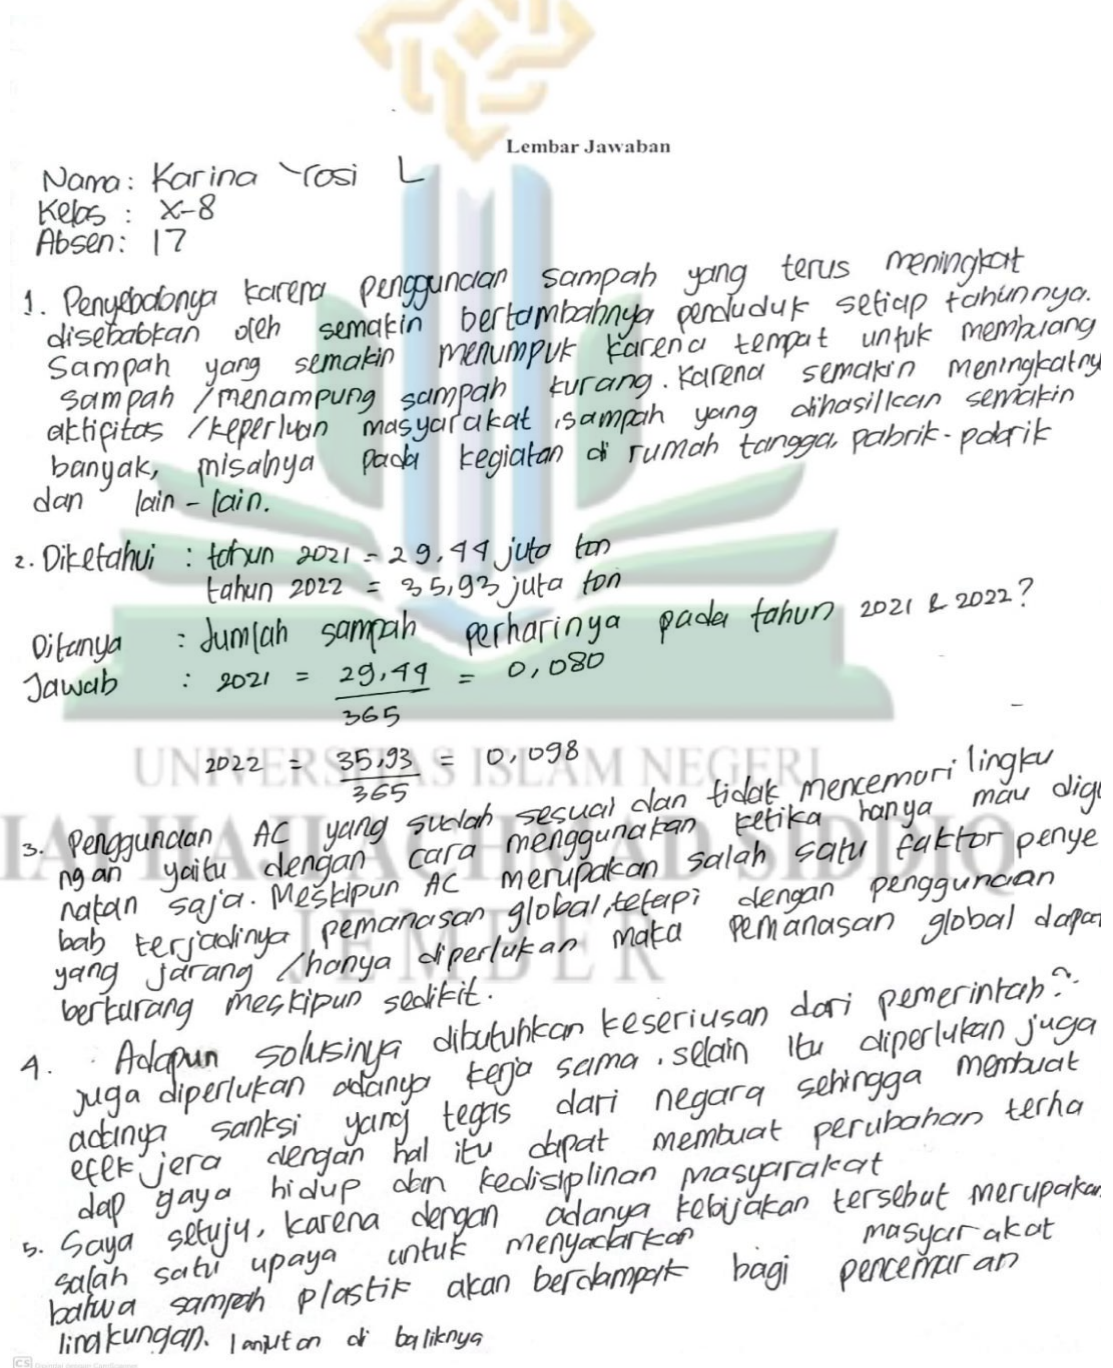 Lembar Jawaban
Nama: Karina Yosi L
Kelas : X-8
Absen: 17
1. Penyebabnya karena penggunaan sampah yang terus meningkat
disebabkan oleh semakin bertambahnya penduduk setiap tahunnya.
Sampah yang semakin menumpuk karena tempat untuk membuang
sampah /menampung sampah kurang. Karena semakin meningkatny
aktifitas /keperluan masyarakat, sampah yang dihasilkan semakin
banyak, misalnya pada kegiatan di rumah tangga, pabrik-pabrik
dan lain-lain.
2. Diketahui : tahun 2021 = 29,44 juta ton
tahun 2022 = 35,93 juta ton
Ditanya : Jumlah sampah perharinya pada tahun 2021 & 2022?
Jawab : 2021 = 29,44 = 0,080
365
2022 = 35,93 = 0,098
365
UNIVERSITAS ISLAM NEGERI
KIAI HAJI ACHMAD SIDDIQ
JEMBER
3. Penggunaan AC yang sudah sesuai dan tidak mencemari lingku
ngan yaitu dengan cara menggunakan ketika hanya mau digu
nakan saja. Meskipun AC merupakan salah satu faktor penye
bab terjadinya pemanasan global, tetapi dengan penggunaan
yang jarang /hanya diperlukan maka pemanasan global dapat
berkurang meskipun sedikit.
4. Adapun solusinya dibutuhkan keseriusan dari pemerintah?
juga diperlukan adanya kerja sama. selain itu diperlukan juga
adanya sanksi yang tegas dari negara sehingga membuat
efek jera dengan hal itu dapat membuat perubahan terha
dap gaya hidup dan kedisiplinan masyarakat
5. Saya setuju, karena dengan adanya kebijakan tersebut merupakan
salah satu upaya untuk menyadarkan masyarakat
bahwa sampah plastik akan berdampak bagi pencemaran
lingkungan. lanjutan di baliknya
CS